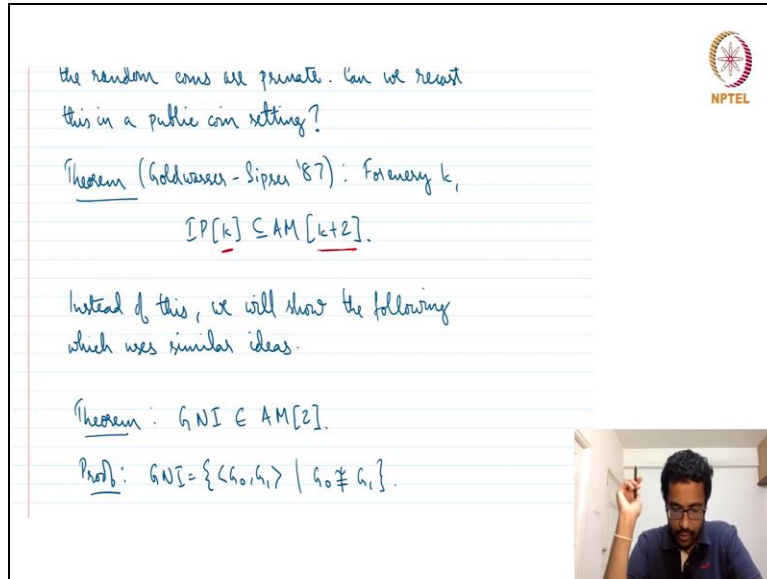 the random coins are private. Can we recast
this in a public coin setting?
Theorem (Goldwasser-Sipser '87): For every k,
IP[k] ⊆ AM[k+2].
Instead of this, we will show the following
which uses similar ideas.
Theorem: GNI ∈ AM[2].
Proof: GNI = {<G₀, G₁> | G₀ ≇ G₁}.
NPTEL